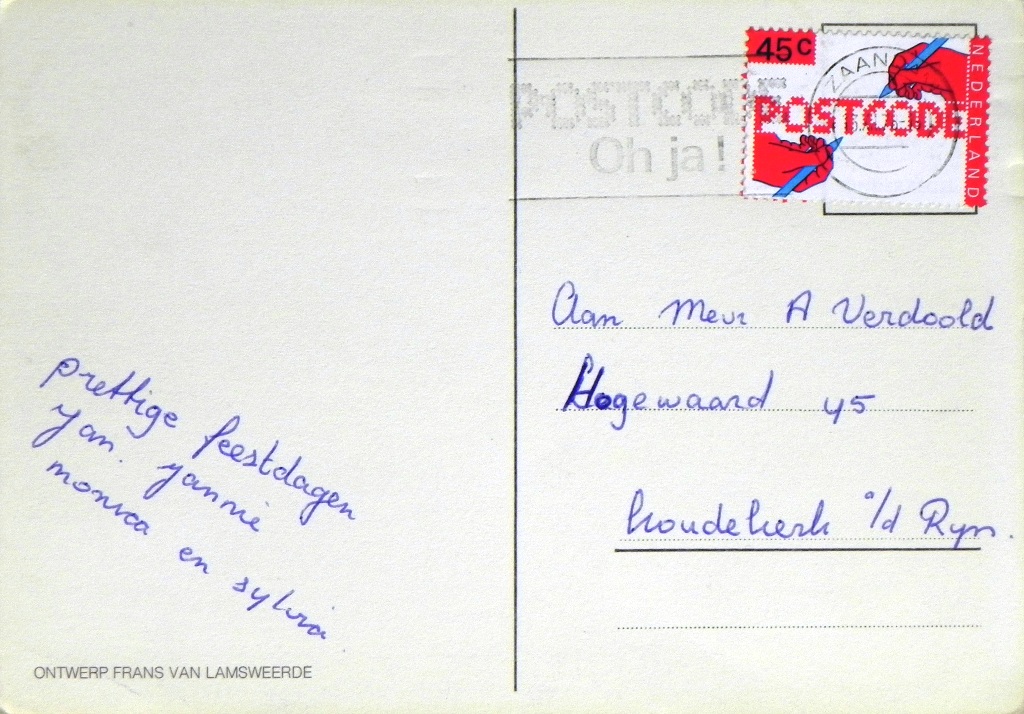 45c
NEDERLAND
POSTCODE
ZAAN
POSTCODE
Oh ja!
Aan Mevr A Verdoold
Hogewaard 45
koudekerk a/d Ryn.
prettige feestdagen
Jan. Jannie
monica en sylvia
ONTWERP FRANS VAN LAMSWEERDE